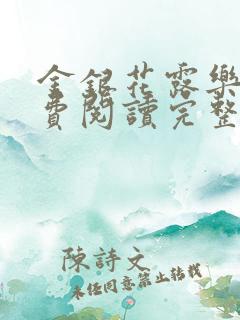 金銀花露樂
費閱讀完整
陳詩文
未经同意禁止转载